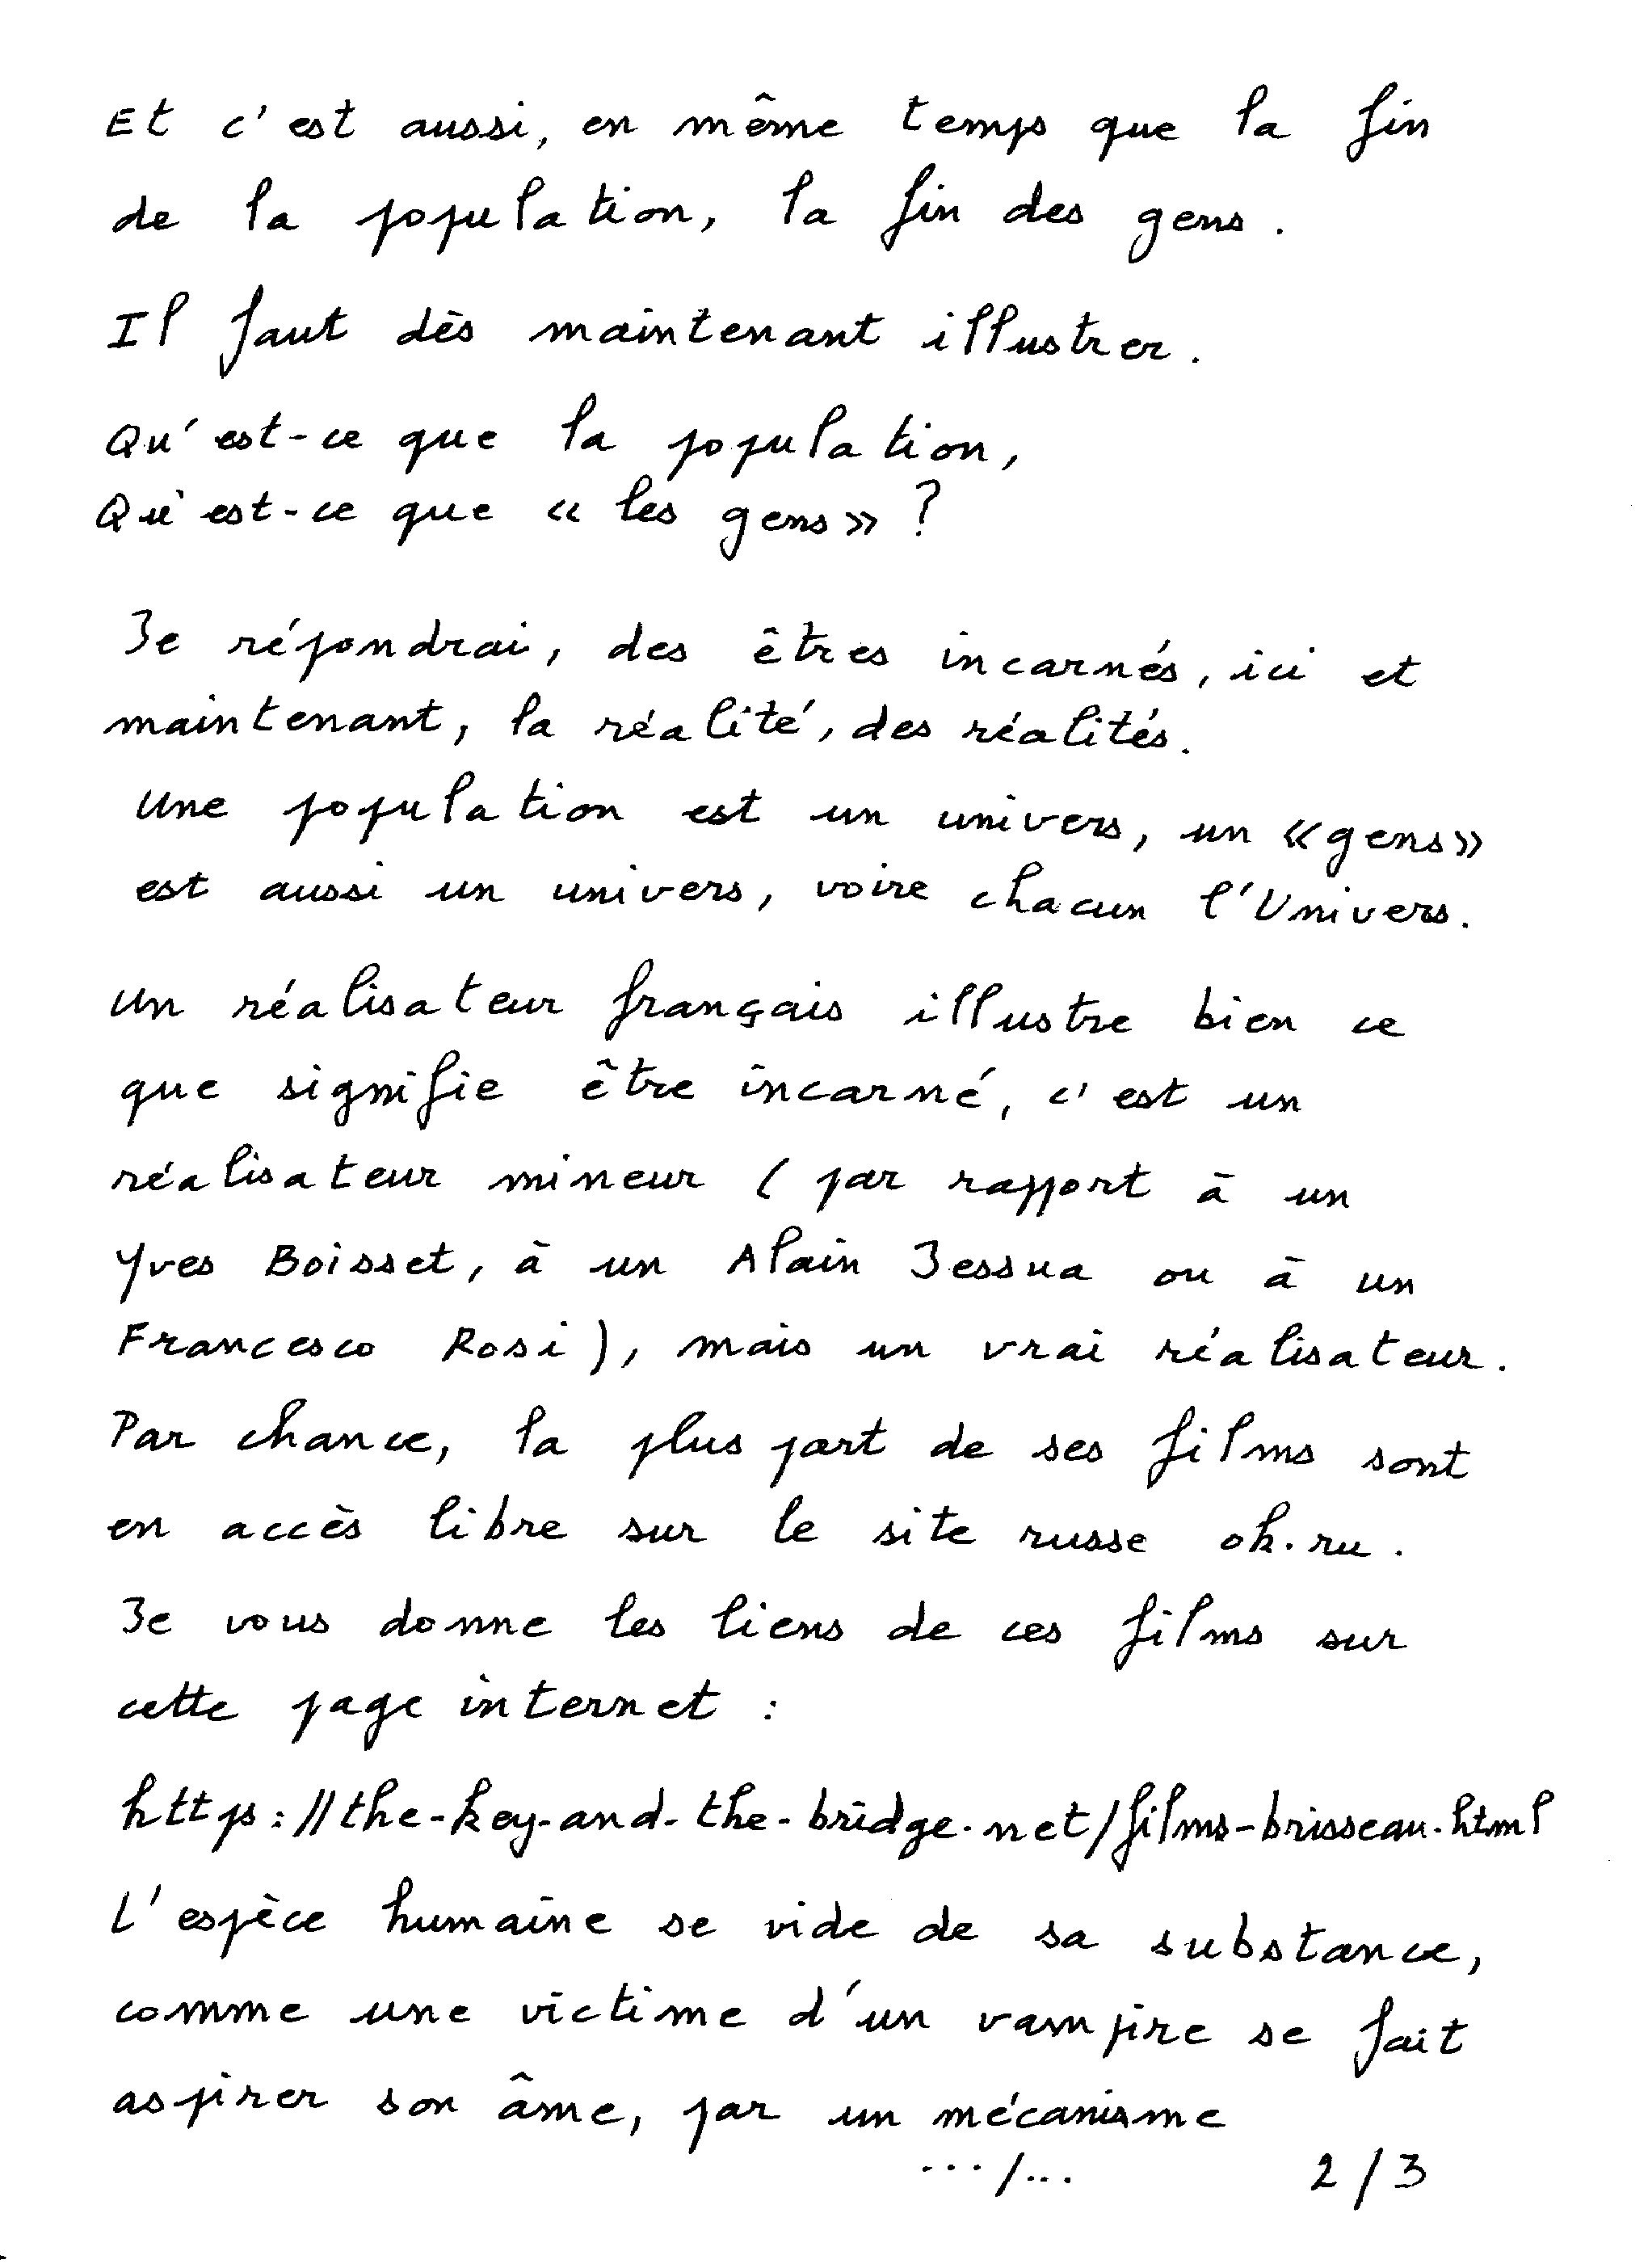 Et c'est aussi, en même temps que la fin
de la population, la fin des gens.
Il faut dès maintenant illustrer.
Qu'est-ce que la population,
Qu'est-ce que « les gens » ?
Je répondrai, des êtres incarnés, ici et
maintenant, la réalité, des réalités.
Une population est un univers, un « gens »
est aussi un univers, voire chacun l'Univers.
Un réalisateur français illustre bien ce
que signifie être incarné, c'est un
réalisateur mineur (par rapport à un
Yves Boisset, à un Alain Jessua ou à un
Francesco Rosi), mais un vrai réalisateur.
Par chance, la plus part de ses films sont
en accès libre sur le site russe ok.ru.
Je vous donne les liens de ces films sur
cette page internet :
https://the-key-and-the-bridge.net/films-brisseau.html
L'espèce humaine se vide de sa substance,
comme une victime d'un vampire se fait
aspirer son âme, par un mécanisme
.../...
2/3